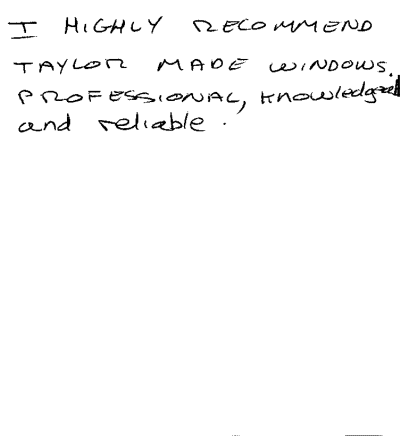 I HIGHLY RECOMMEND
TAYLOR MADE WINDOWS.
PROFESSIONAL, knowledgeable
and reliable.